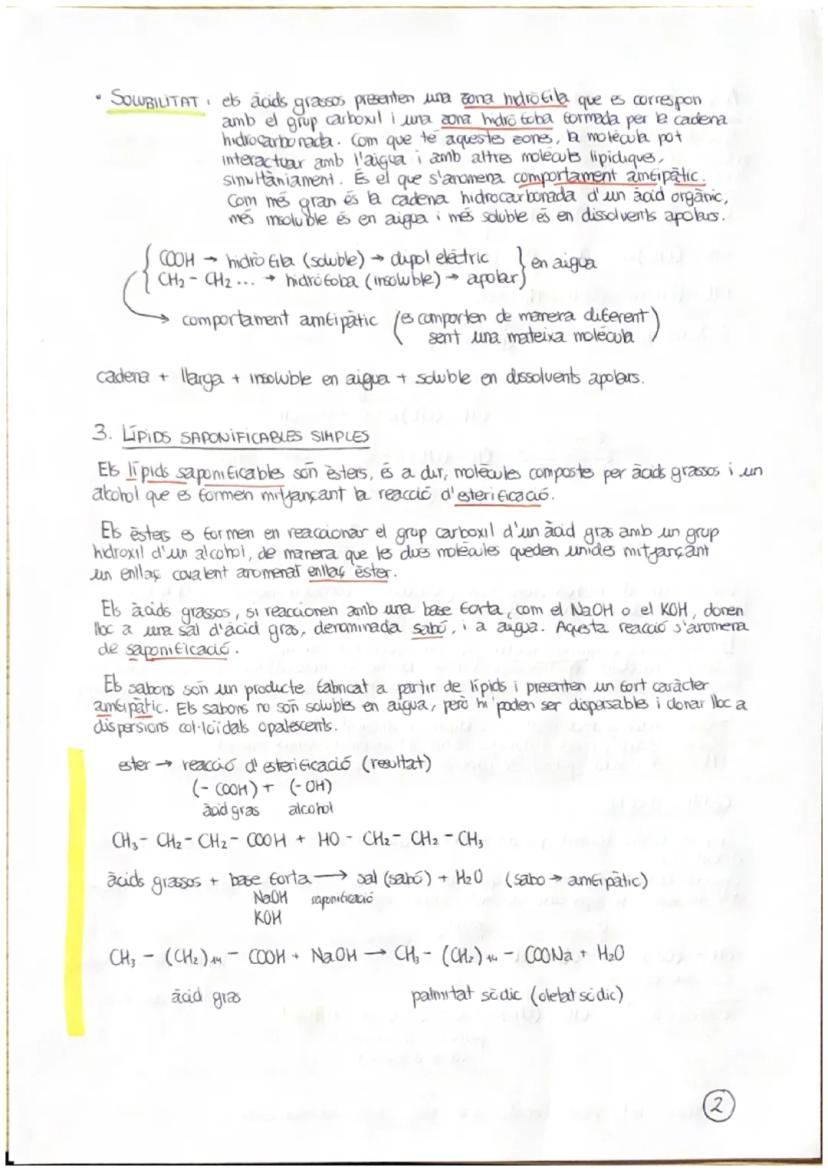 • SOLUBILITAT: els àcids grassos presenten una zona hidròfila que es correspon
amb el grup carboxil i una zona hidròfoba formada per la cadena
hidrocarbonada. Com que té aquestes zones, la molècula pot
interactuar amb l'aigua i amb altres molècules lipídiques,
simultàniament. És el que s'anomena comportament amfipàtic.
Com més gran és la cadena hidrocarbonada d'un àcid orgànic,
més insoluble és en aigua i més soluble és en dissolvents apolars.
COOH → hidròfila (soluble) → dipol elèctric
CH₂ - CH₂ ... → hidròfoba (insoluble) → apolar
en aigua
→ comportament amfipàtic (es comporten de manera diferent
sent una mateixa molècula)
cadena + llarga + insoluble en aigua + soluble en dissolvents apolars.
3. LÍPIDS SAPONIFICABLES SIMPLES
Els lípids saponificables són èsters, és a dir, molècules compostes per àcids grassos i un
alcohol que es formen mitjançant la reacció d'esterificació.
Els èsters es formen en reaccionar el grup carboxil d'un àcid gras amb un grup
hidroxil d'un alcohol, de manera que les dues molècules queden unides mitjançant
un enllaç covalent anomenat enllaç èster.
Els àcids grassos, si reaccionen amb una base forta, com el NaOH o el KOH, donen
lloc a una sal d'àcid gras, denominada sabó, i a aigua. Aquesta reacció s'anomena
de saponificació.
Els sabons són un producte fabricat a partir de lípids i presenten un fort caràcter
amfipàtic. Els sabons no són solubles en aigua, però hi poden ser dispersables i donar lloc a
dispersions col·loïdals opalescents.
ester → reacció d'esterificació (resultat)
(- COOH) + (- OH)
àcid gras alcohol
CH₃ - CH₂ - CH₂ - COOH + HO - CH₂ - CH₂ - CH₃
àcids grassos + base forta → sal (sabó) + H₂O (sabo → amfipàtic)
NaOH saponificació
KOH
CH₃ - (CH₂)₁₄ - COOH + NaOH → CH₃ - (CH₂)₁₄ - COONa + H₂O
àcid gras palmitat sòdic (oleat sòdic)
2